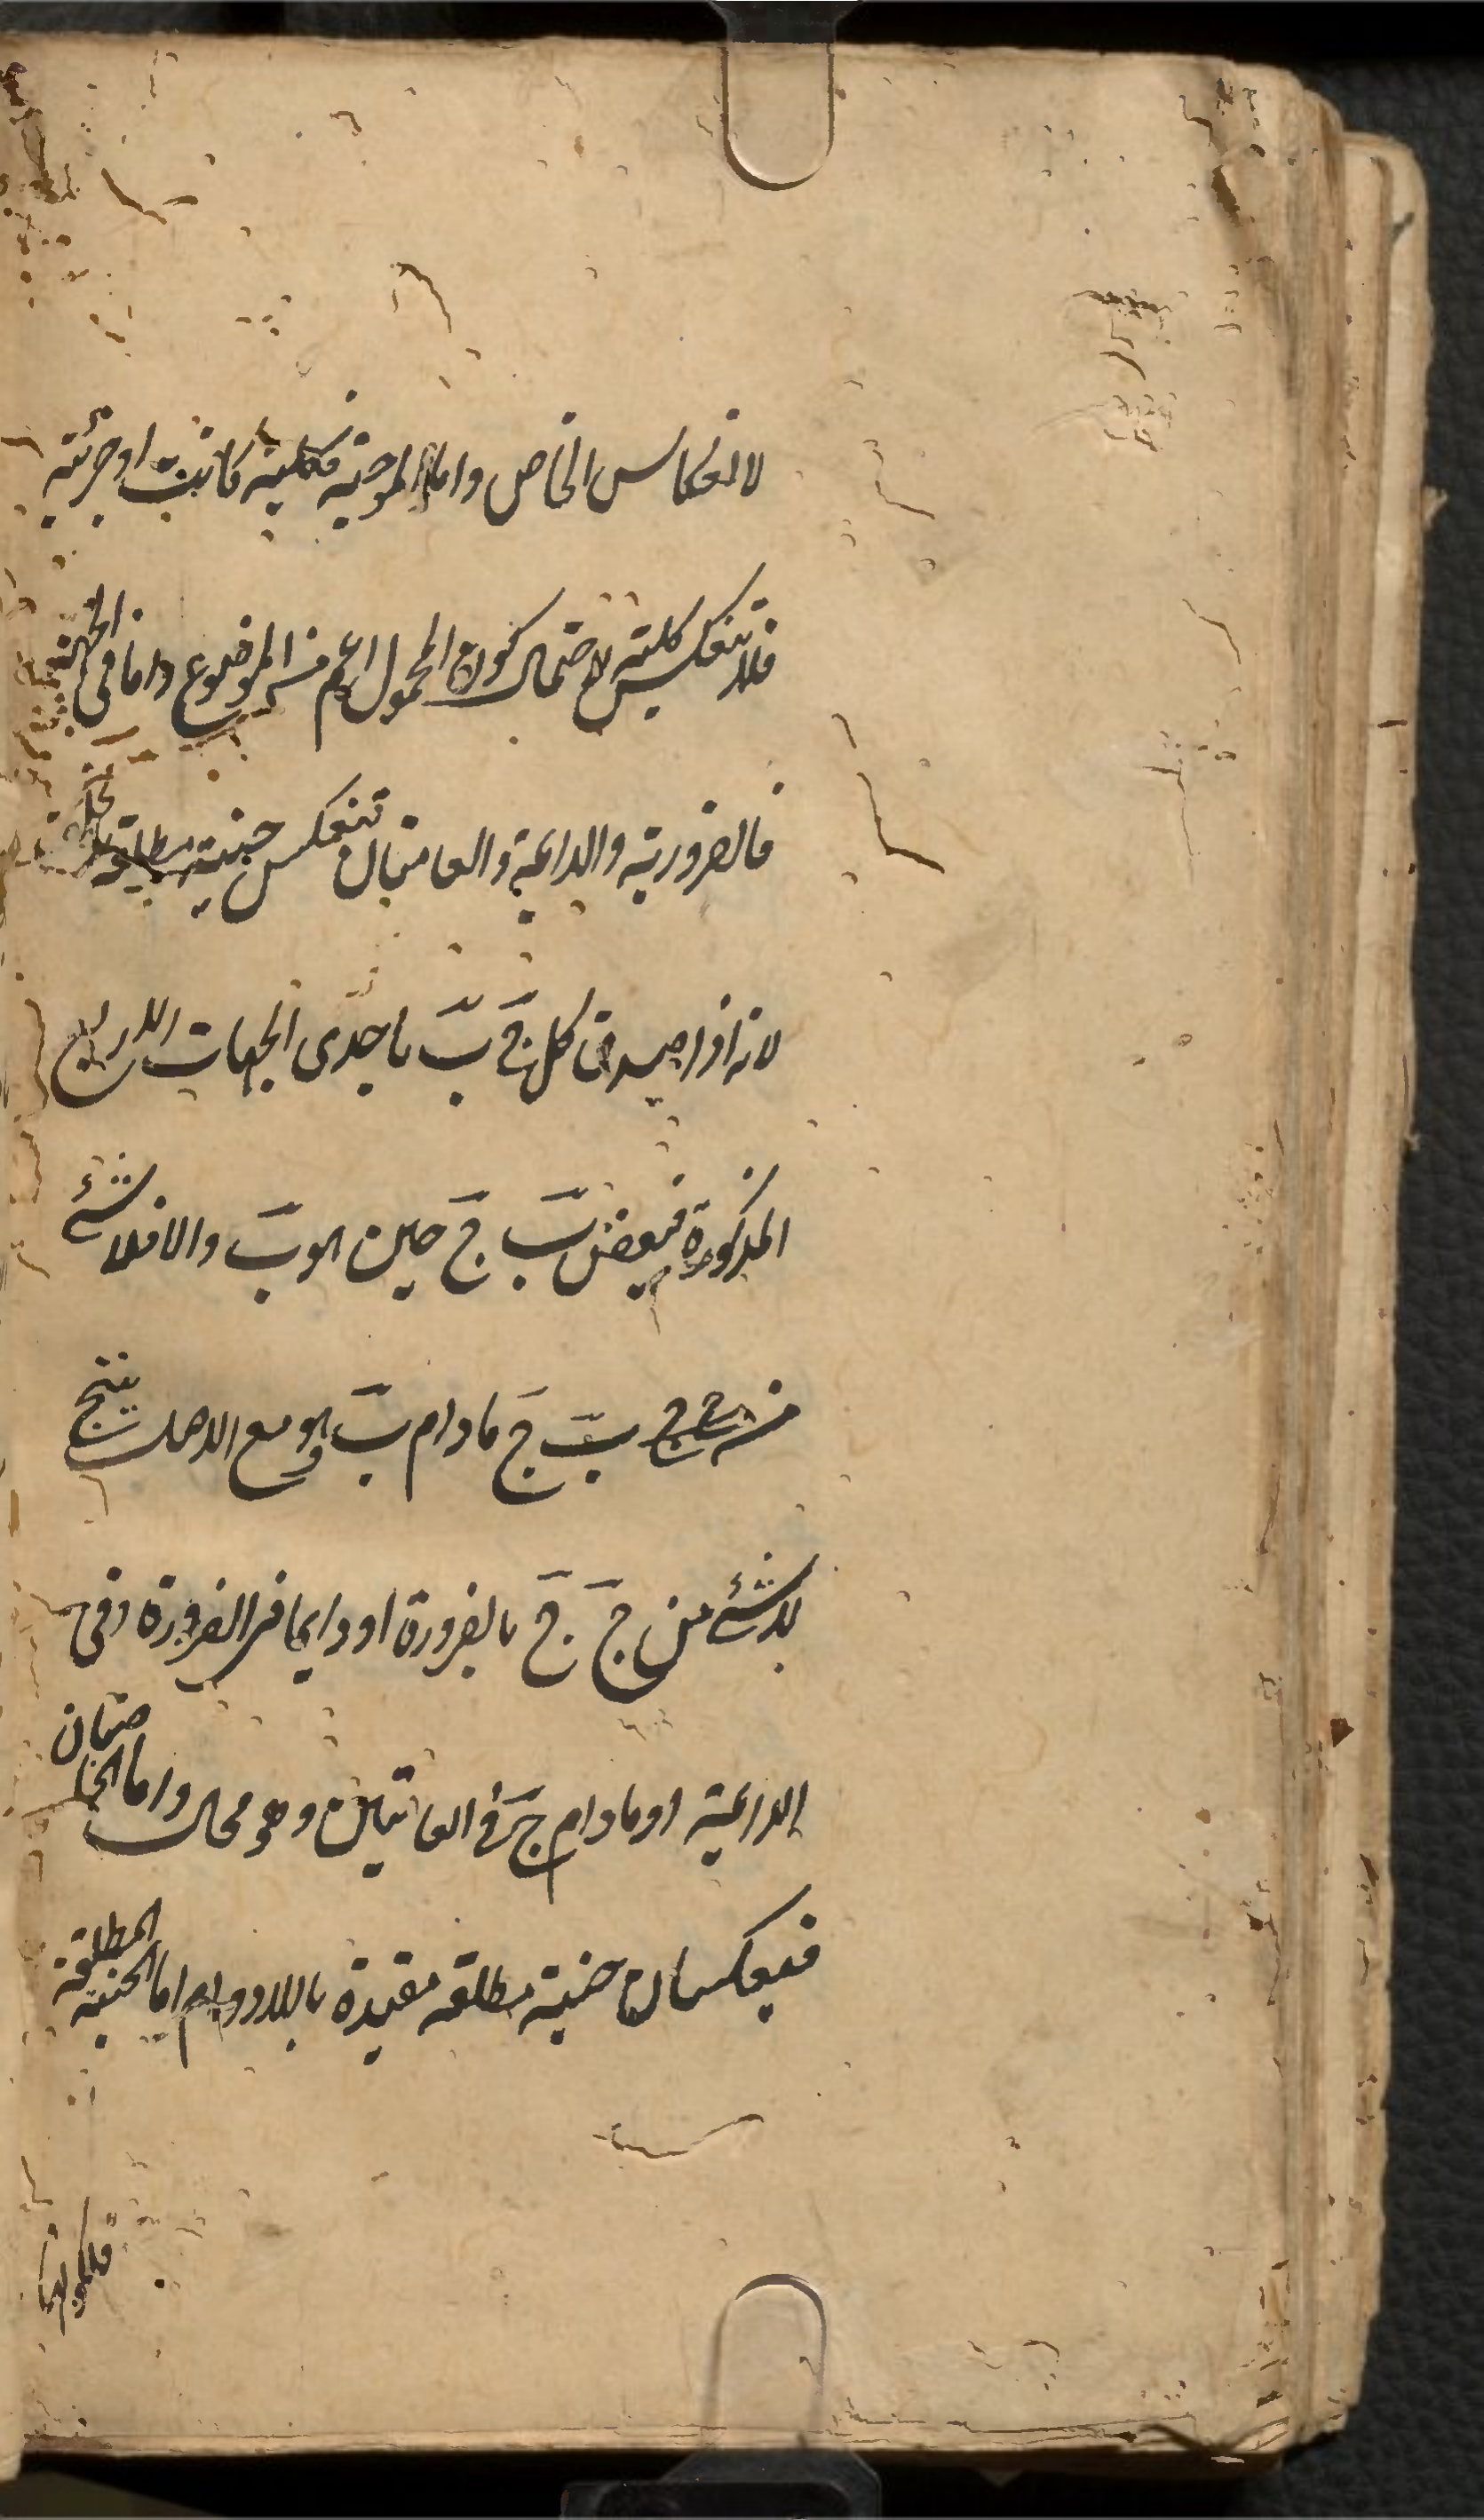 لانعكاس الخاص واما الموجبة فكلية كانت او جزئية
فلا تنعكس كلية لاحتمال كون المحمول اعم من الموضوع واما فى الجهة
فالضرورية والدائمة والعامتان تنعكس حينية مطلقة
لانه اذا صدق كل ج ب باحدى الجهات الاربع
المذكورة فبعض ب ج حين هو ب والا فلا شئ
من ب ج مادام ب وهو مع الاصل ينتج
لا شئ من ج ج بالضرورة او دايما فى الضرورة وفى
الدائمة او مادام ج فى العامتين وهو محال واما الخاصتان
فينعكسان حينية مطلقة مقيدة باللادوام اما الحينية المطلقة
فلكونها